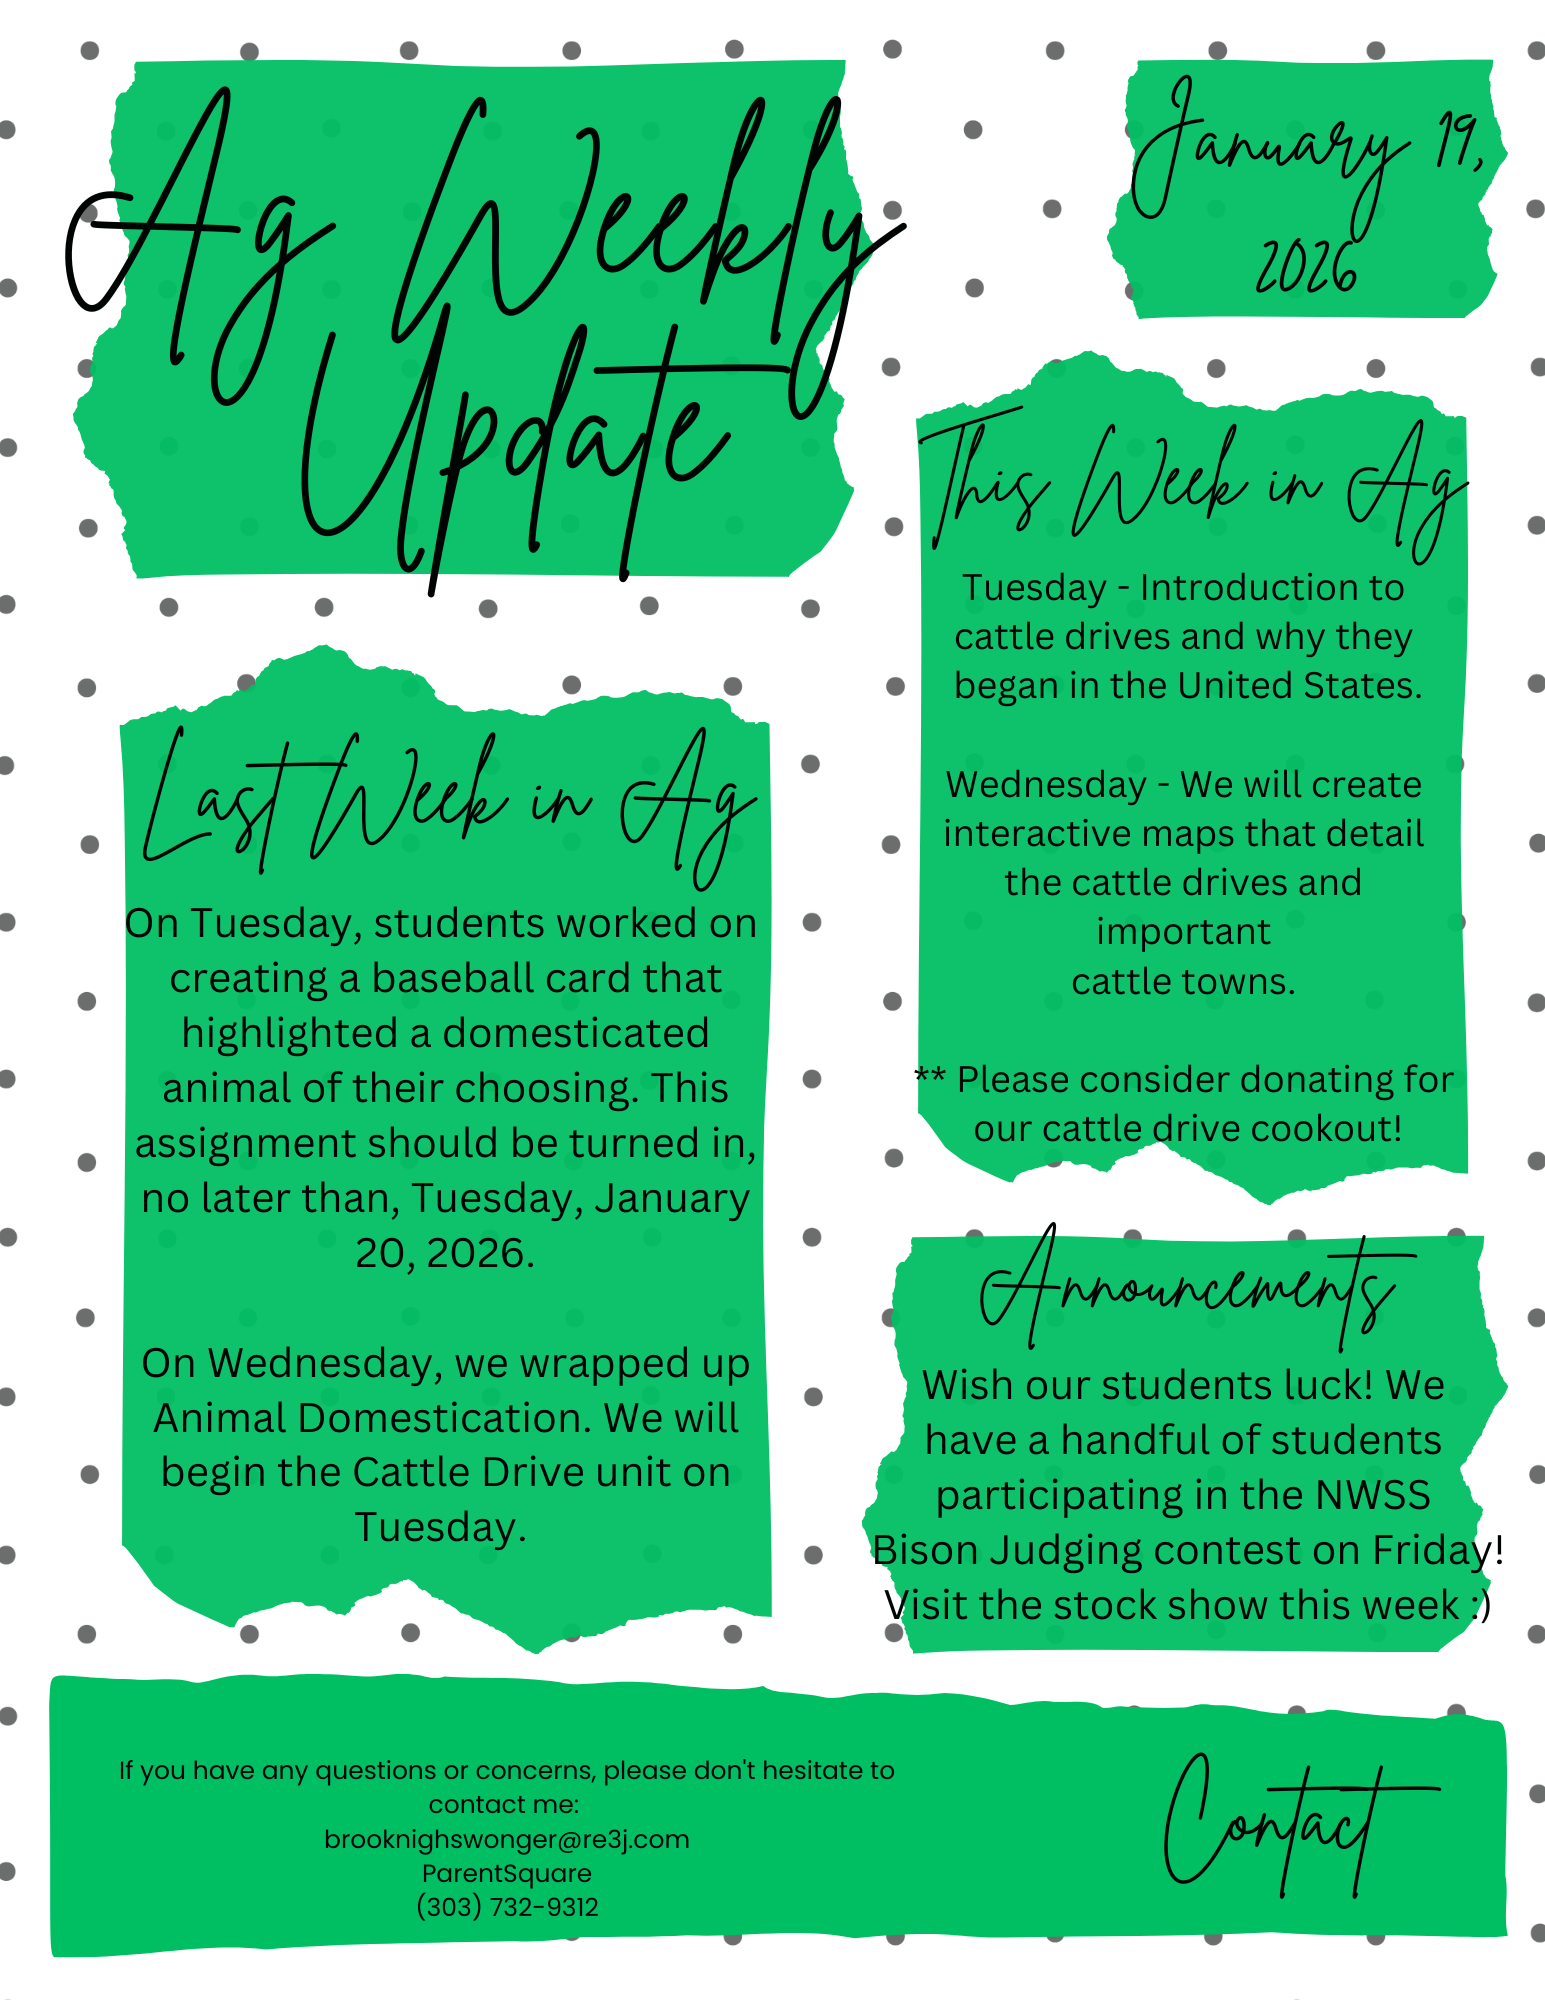 Ag Weekly
Update
January 19,
2026
Last Week in Ag
On Tuesday, students worked on
creating a baseball card that
highlighted a domesticated
animal of their choosing. This
assignment should be turned in,
no later than, Tuesday, January
20, 2026.
On Wednesday, we wrapped up
Animal Domestication. We will
begin the Cattle Drive unit on
Tuesday.
This Week in Ag
Tuesday - Introduction to
cattle drives and why they
began in the United States.
Wednesday - We will create
interactive maps that detail
the cattle drives and
important
cattle towns.
** Please consider donating for
our cattle drive cookout!
Announcements
Wish our students luck! We
have a handful of students
participating in the NWSS
Bison Judging contest on Friday!
Visit the stock show this week :)
If you have any questions or concerns, please don't hesitate to
contact me:
brooknighswonger@re3j.com
ParentSquare
(303) 732-9312
Contact